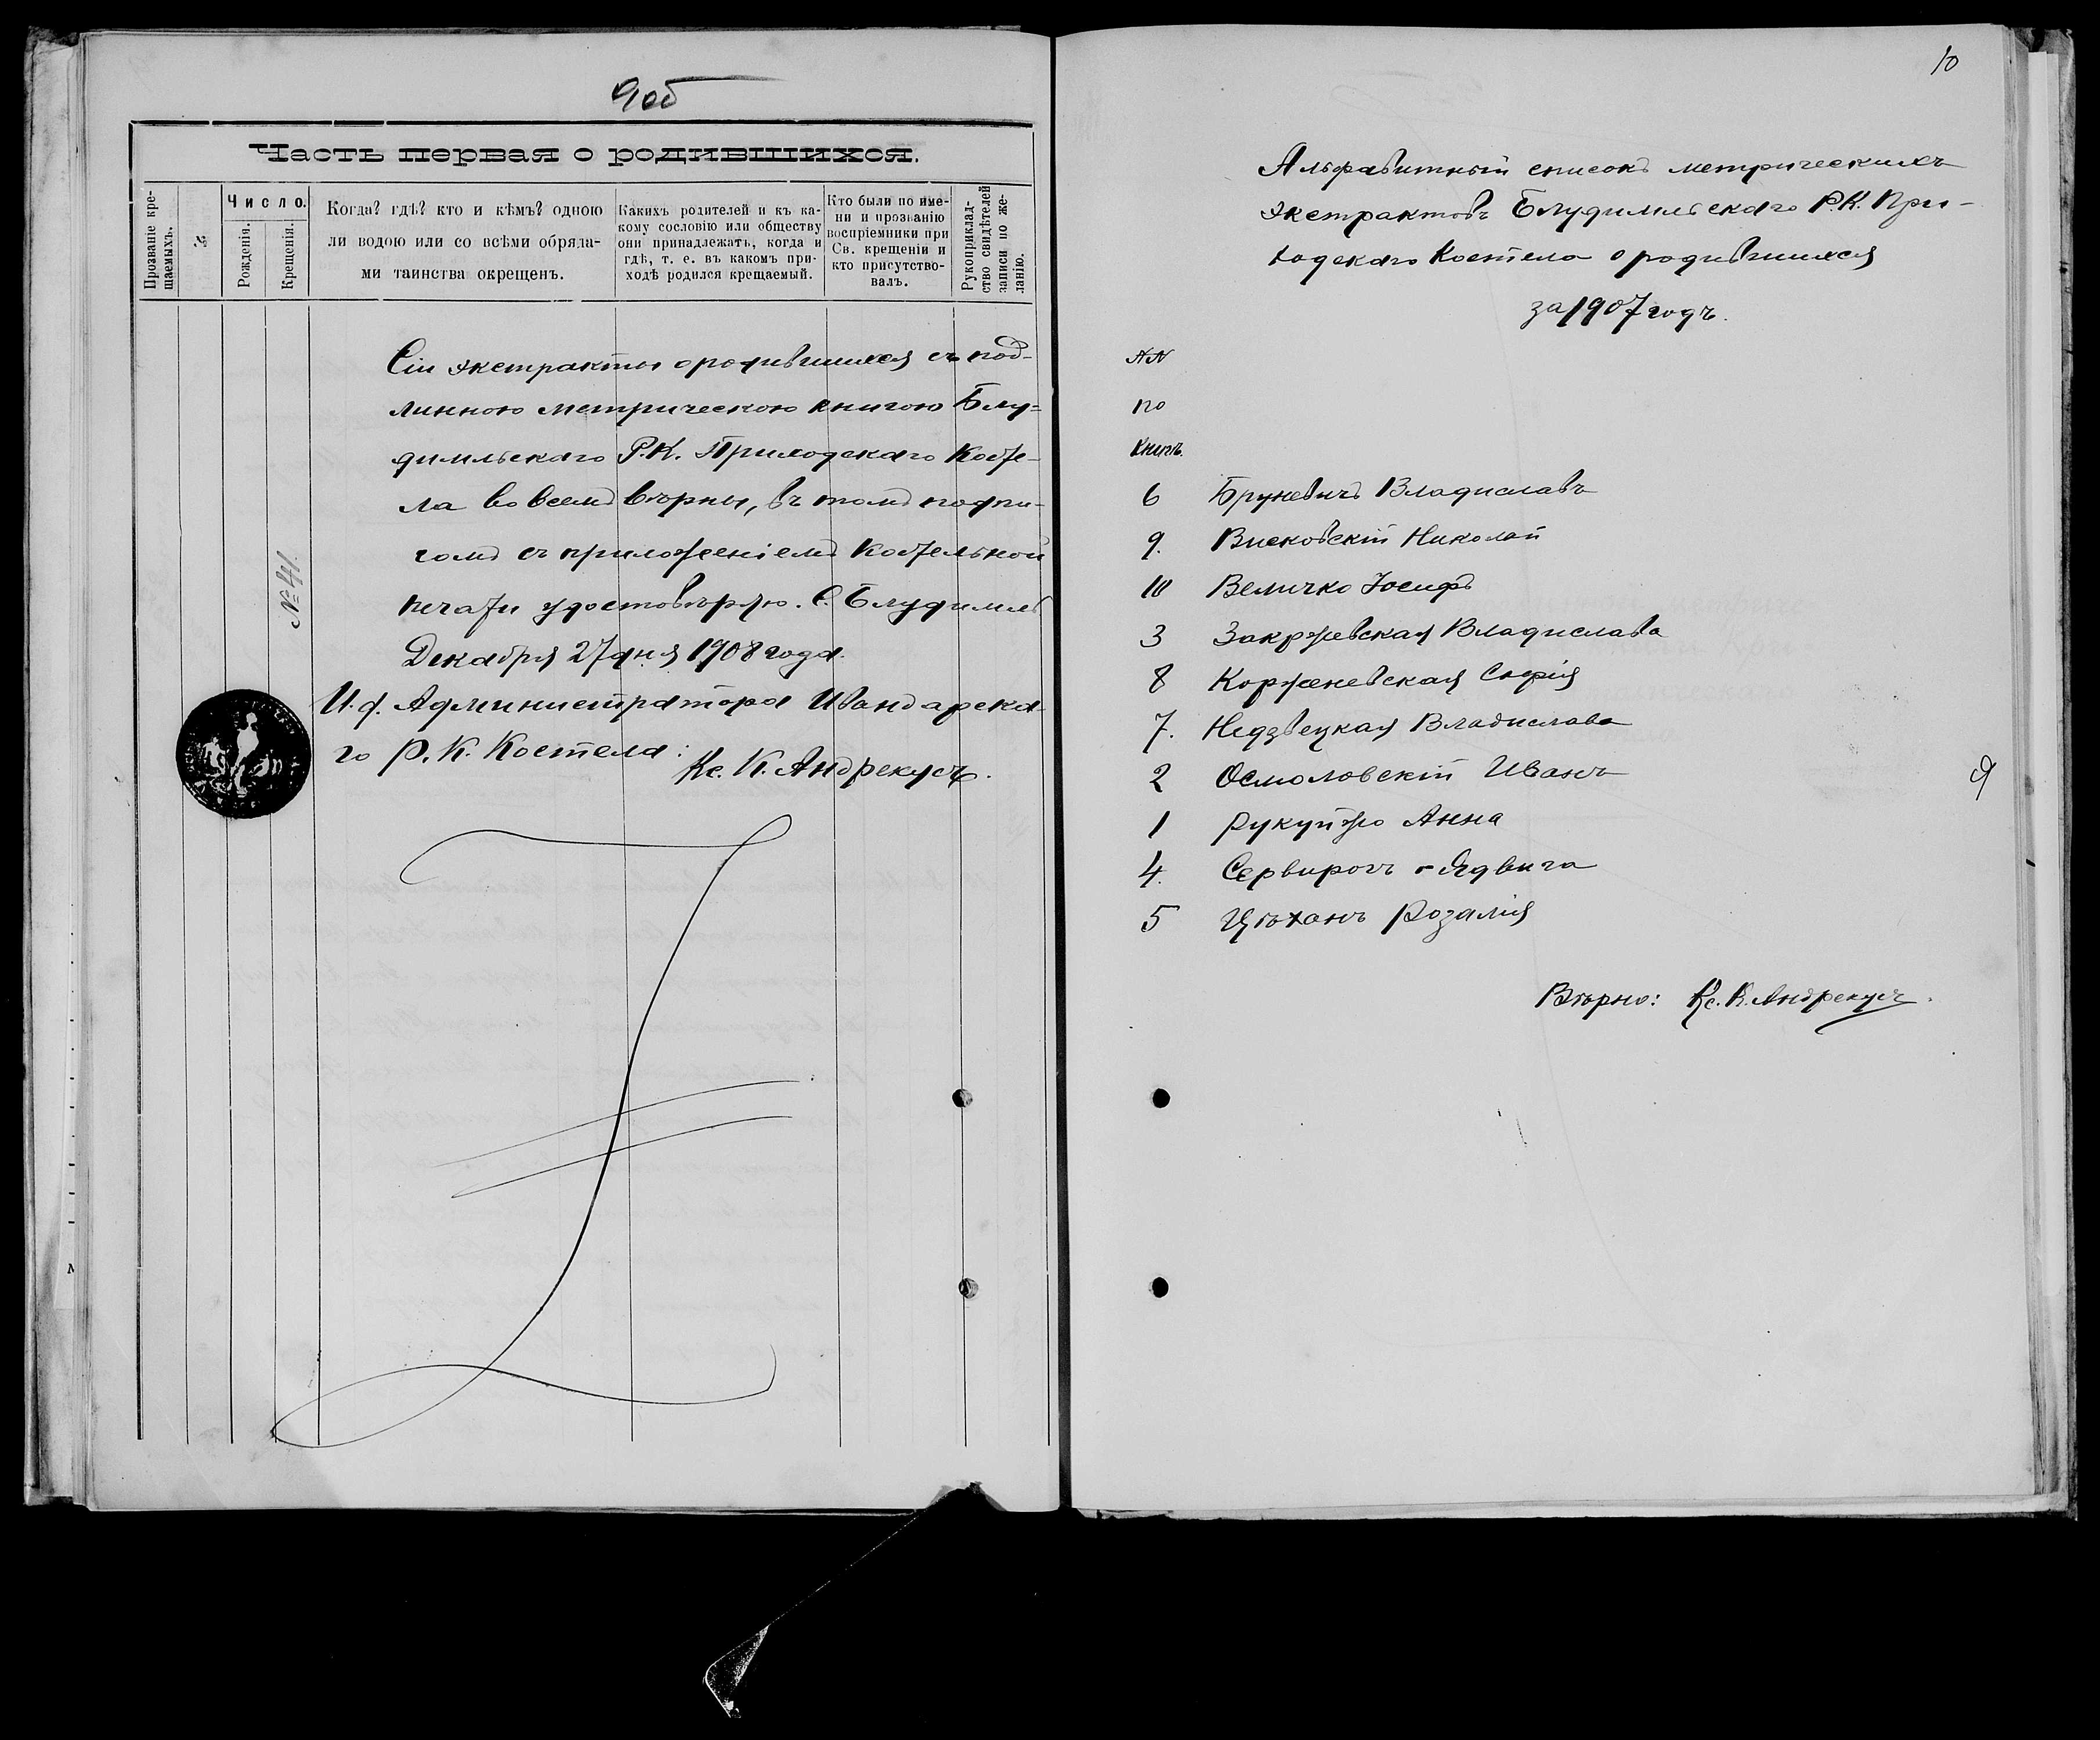 9об
Часть первая о родившихся.
Прозваніе кре-
щаемыхъ.
№
Число.
Рожденія.
Крещенія.
Когда? гдѣ? кто и кѣмъ? одною
ли водою или со всѣми обряда-
ми таинства окрещенъ.
Какихъ родителей и къ ка-
кому сословію или обществу
они принадлежатъ, когда и
гдѣ, т. е. въ какомъ при-
ходѣ родился крещаемый.
Кто были по име-
ни и прозванію
воспріемники при
Св. крещеніи и
кто присутство-
валъ.
Рукоприклад-
ство свидѣтелей
записи по же-
ланію.
Сіи экстракты о родившихся съ под-
линною метрическою книгою Блу-
димльскаго Р.К. Приходскаго Косте-
ла во всемъ вѣрны, въ томъ подпи-
сомъ съ приложеніемъ костельной
печати удостовѣряю. С. Блудимль
Декабря 27 дня 1908 года.
И.д. Администратора Ивандарска-
го Р. К. Костела:
Кс. К. Андрекусъ.
№ 41.
10
Альфавитный списокъ метрическихъ
экстрактовъ Блудимльскаго Р.К. При-
ходскаго Костела о родившихся
за 1907 годъ.
NN
по
Книгѣ.
6 Бруневичъ Владиславъ
9. Висковскій Николай
10 Величко Іосифъ
3 Закржевская Владислава
8 Корженевская Софія
7. Недзвецкая Владислава
2 Осмоловскій Иванъ
1 Рукуйжо Анна
4. Сервирогъ - Ядвига
5 Цѣханъ Розалія
Вѣрно: Кс. К. Андрекусъ.